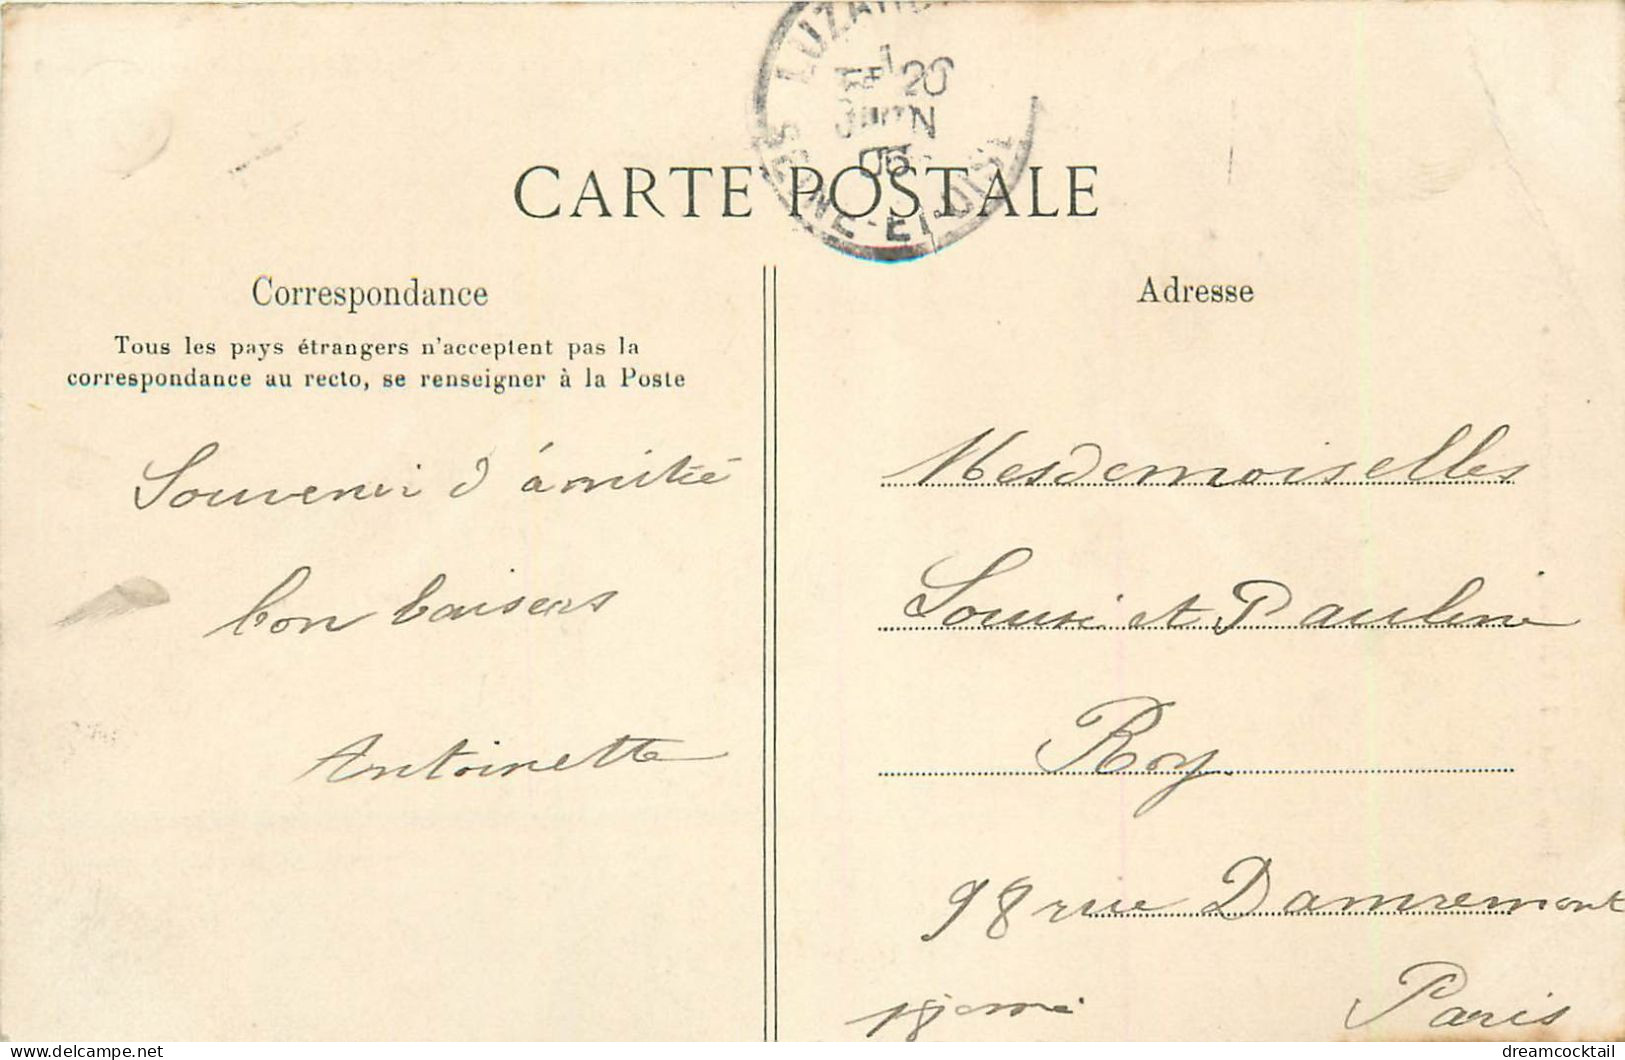 LUZARCHES
1E 26
JUIN
06
SEINE-ET-OISE
CARTE POSTALE
Correspondance
Tous les pays étrangers n'acceptent pas la
correspondance au recto, se renseigner à la Poste
Souvenir d'amitié
bon baisers
Antoinette
Adresse
Mesdemoiselles
Louise et Pauline
Roy
98 rue Damremont
18ieme Paris
dreamcocktail